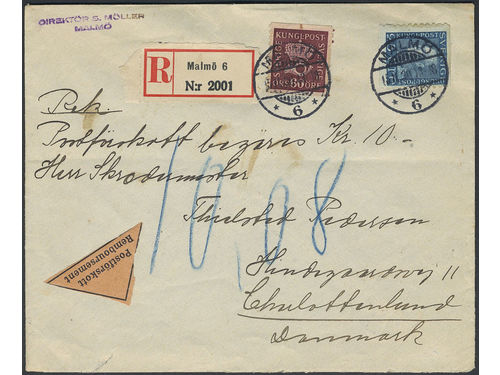 DIREKTÖR S. MÖLLER
MALMÖ
R
Malmö 6
N:r 2001
SVERIGE
KUNGL·POST
80 ÖRE
KUNGL·POST
MALMÖ
6
MALMÖ
6
Rek.
Postförskott Kr. 10.—
Herr Skrædermester
Thielsted Pedersen
11
Charlottenlund
Danmark
10,08
Postförskott
Remboursement